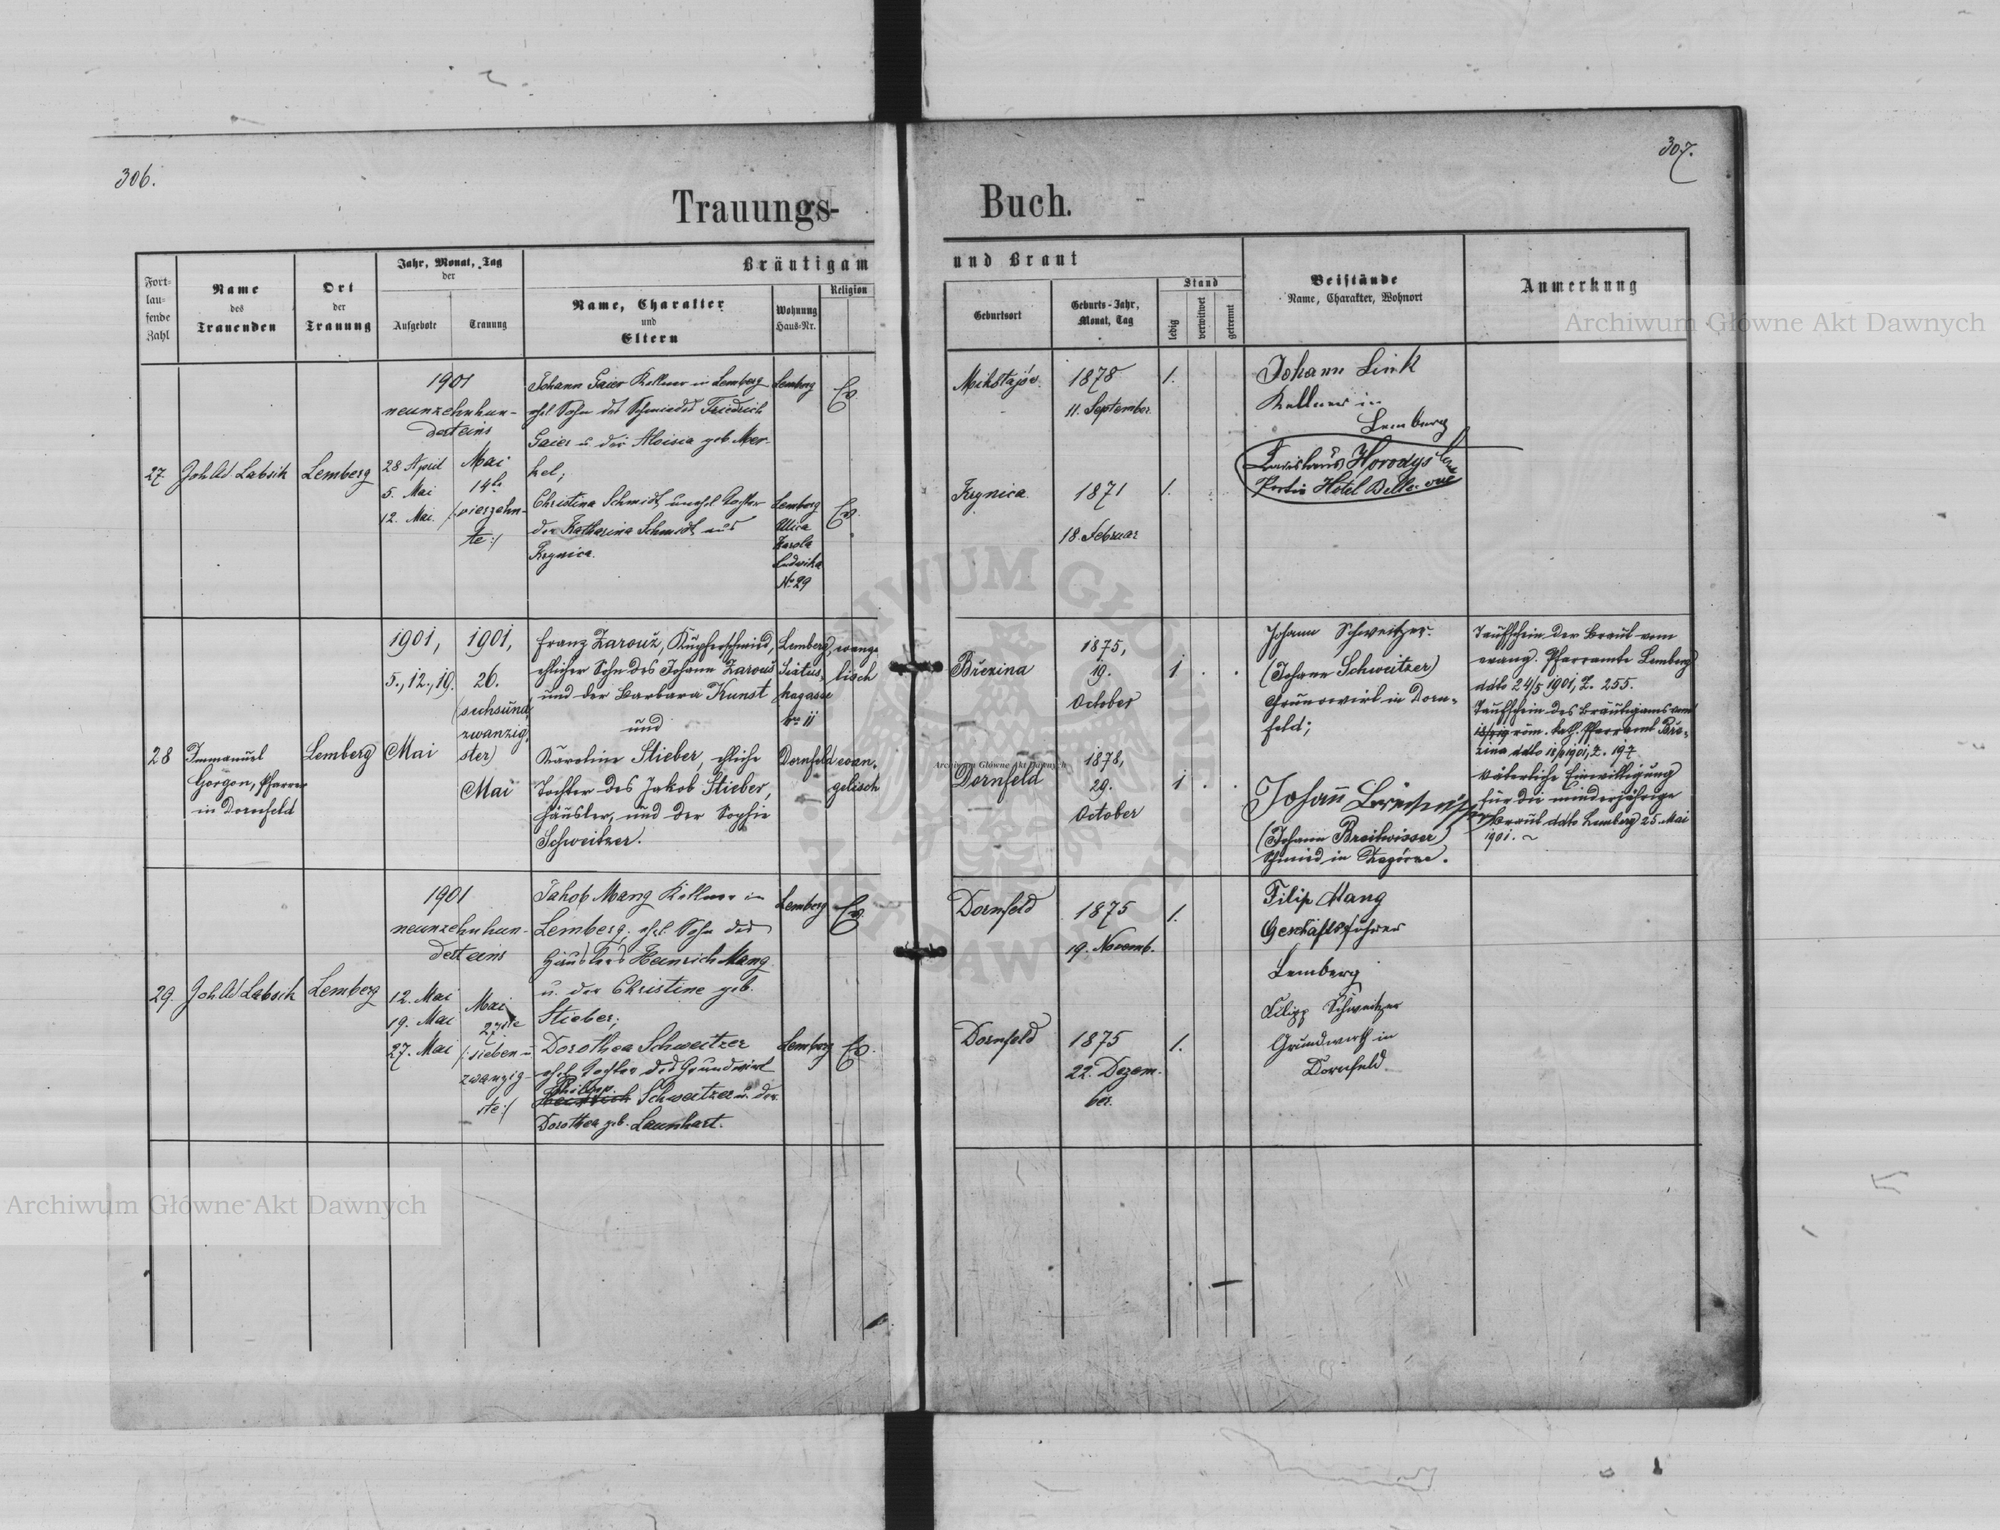 306.
307.
Trauungs-
Buch.
Fort-
lau-
fende
Zahl
Name
des
Trauenden
Ort
der
Trauung
Jahr, Monat, Tag
der
Aufgebote
Trauung
Bräutigam
Name, Charakter
und
Eltern
Wohnung
Haus-Nr.
Religion
und Braut
Geburtsort
Geburts-Jahr,
Monat, Tag
Stand
ledig
verwitwet
getrennt
Beistände
Name, Charakter, Wohnort
Anmerkung
27.
Joh Ad Labsik
Lemberg
1901
neunzehnhun-
dert eins
28 April
5. Mai
12. Mai
Mai
14te
(:vierzehn-
te:)
Johann Gaier Kellner in Lemberg
ehel Sohn des Schmiedes Friedrich
Gaier u. der Aloisia geb. Mer-
kel;
Christina Schmidt unehel Tochter
der Katharina Schmidt aus
Krynica.
Lemberg
Lemberg
Ulica
Karola
Ludwika
No 29
Ev.
Ev.
Mikołajów.
1878
11. September
1.
Krynica
1871
18. Februar
1.
Johann Link
Kellner in
Lemberg
Horodys
Hotel Bellevue
28
Immanuel
Gorgon, Pfarrer
in Dornfeld
Lemberg
1901,
5., 12., 19.
Mai
1901,
26.
(sechsund
zwanzig-
ster)
Mai
Franz Zarouž, Kupferschmied,
ehlicher Sohn des Johann Zarouž
und der Barbara Kunst
und
Karoline Stieber, ehliche
Tochter des Jakob Stieber,
Häusler, und der Sophie
Schweitzer.
Lemberg
kagasse
No 11
Dornfeld
evange
lisch
evan,
gelisch
Březina
1875,
19.
October
1
Dornfeld
1878,
29.
October
1
Johann Schweitzer.
(Johann Schweitzer)
Grundwirt in Dorn-
feld;
Johann Breitwieser
(Johann Breitwieser)
Schmied in
Taufschein der Braut vom
evang. Pfarramte Lemberg
ddto 24/5 1901, Z. 255.
Taufschein des Bräutigams vom
röm. kath. Pfarramt Bře-
zina ddto 1901, Z. 197
Väterliche Einwilligung
für die minderjährige
Braut ddto Lemberg 25. Mai
1901.
29.
Joh Ad Labsik
Lemberg
1901
neunzehnhun-
dert eins
12. Mai
19. Mai
27. Mai
Mai
27te
(:sieben u
zwanzig-
ste:)
Jakob Mang Kellner in
Lemberg; ehel. Sohn des
Häuslers Heinrich Mang
u. der Christine geb.
Stieber;
Dorothea Schweitzer
ehel Tochter des Grundwirt
Philipp
Heinrich Schweitzer u. der
Dorothea geb. Launhart.
Lemberg
Lemberg
Ev.
Ev.
Dornfeld
1875
19. Novemb.
1.
Dornfeld
1875
22. Dezem-
ber.
1.
Filip Mang
Geschäftsführer
Lemberg
Filipp Schweitzer
Grundwirth in
Dornfeld.
Archiwum Główne Akt Dawnych
Archiwum Główne Akt Dawnych
Archiwum Główne Akt Dawnych